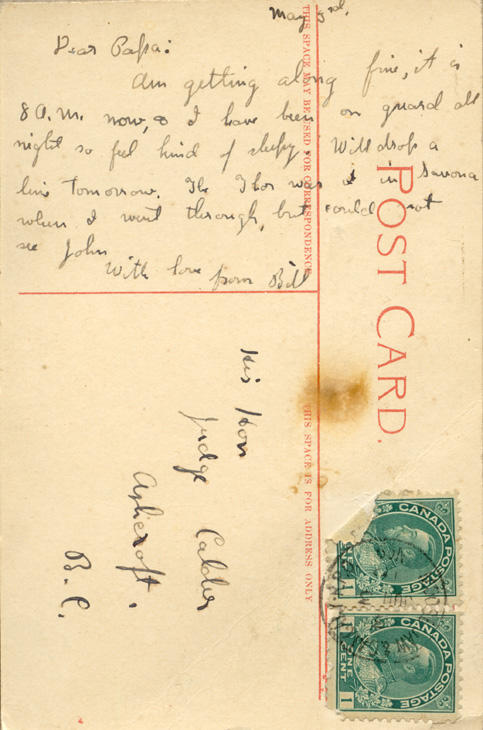 May 3rd.
Dear Papa:
Am getting along fine, it is
8 A.M. now, & I have been on guard all
night so feel kind of sleepy. Will drop a
line tomorrow. The Thor was in Savona
when I went through, but could not
see John
With love from Bill
THIS SPACE MAY BE USED FOR CORRESPONDENCE
POST CARD.
THIS SPACE IS FOR ADDRESS ONLY
His Hon
Judge Calder
Ashcroft.
B.C.
CANADA POSTAGE
1 CENT
CANADA POSTAGE
1 CENT